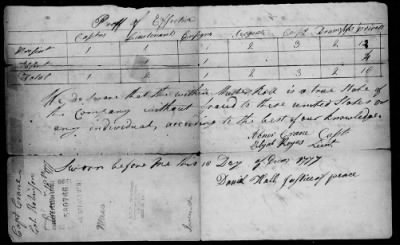 Proff of Effective
Captns Lieutenants Ensigns Serjents Corpl Drum & fifes privates
Present 1 1 1 2 3 2 12
Absent 1 4
Total 1 2 1 2 3 2 16
We do swear that the within Muster Roll is a true State of
the Company without fraud to these united States or
any individual, according to the best of our knowledge
Abner Crane Capt
Elijah Royes Lieut
Sworn before me this 10 Day of 1777
David Hall Justice of peace
Capt Crane
Col Robinson
Mass